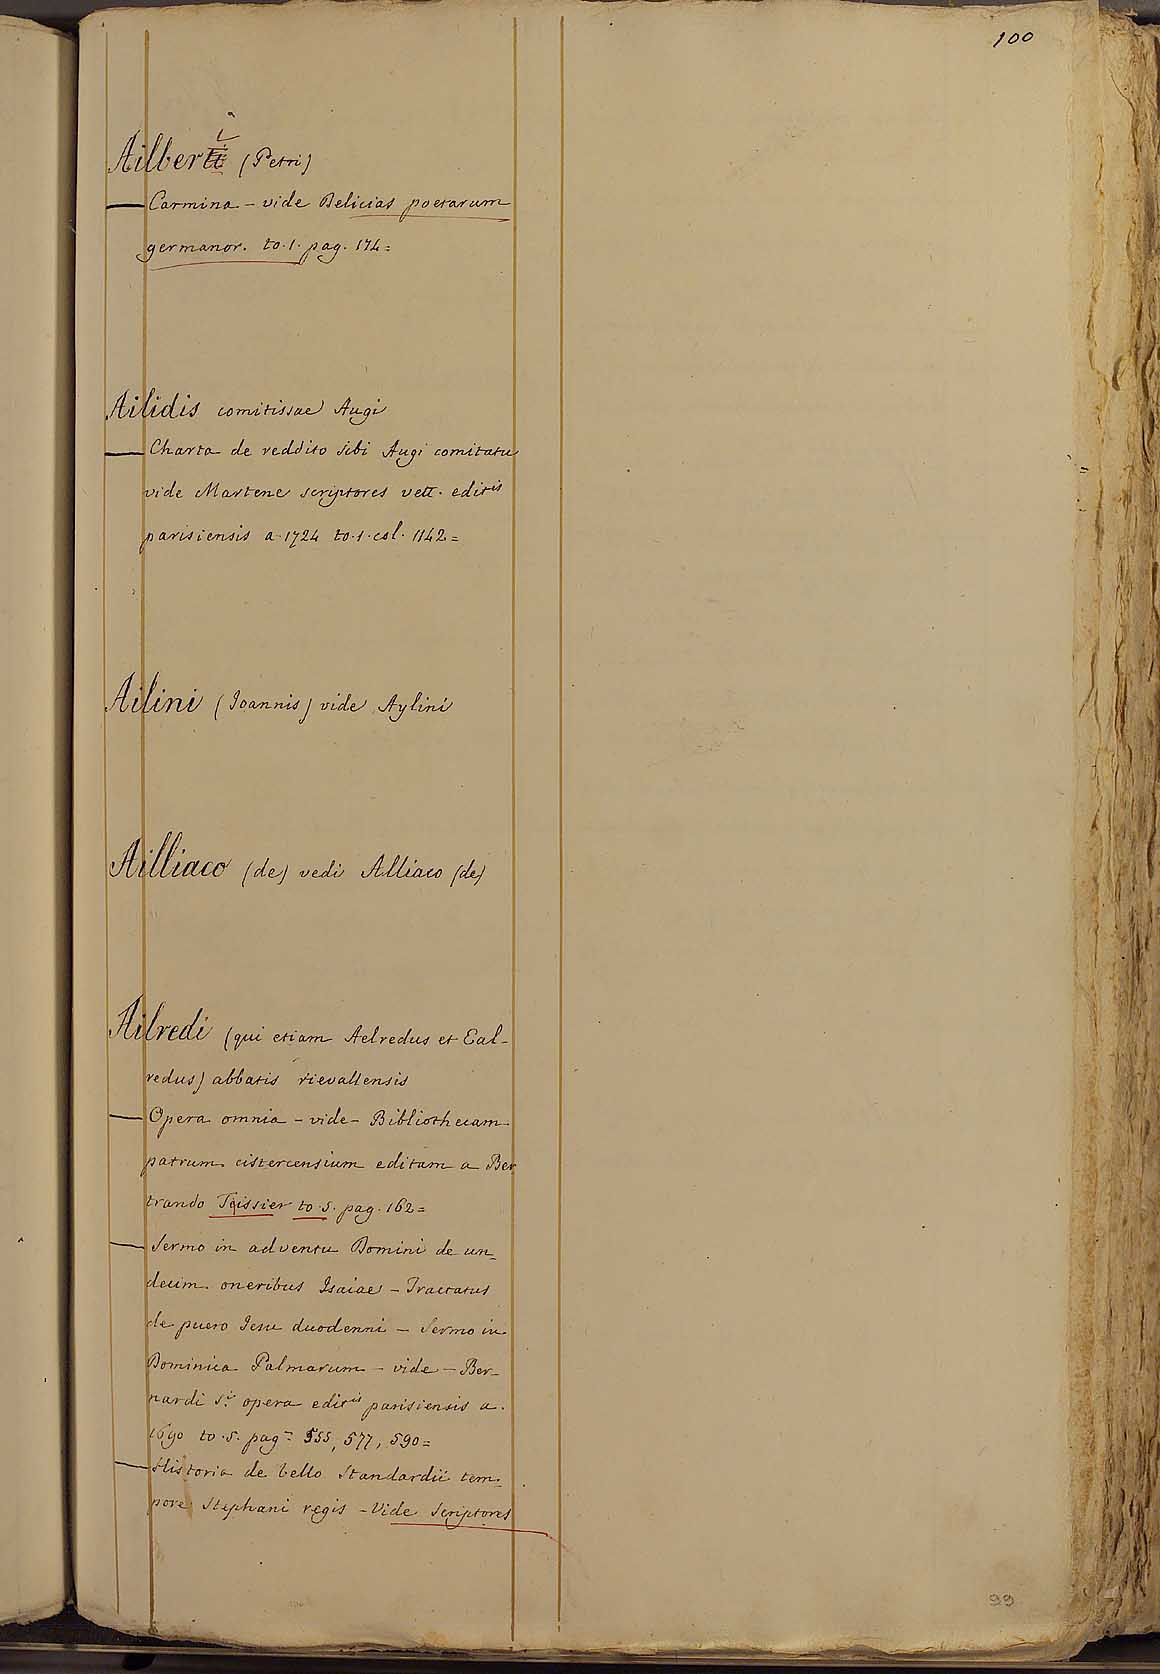 100
Ailberi (Petri)
— Carmina – vide Delicias poetarum
germanor. to. 1. pag. 174=
Ailidis comitissae Augi
— Charta de reddito sibi Augi comitatu
vide Martene scriptores vett. editis
parisiensis a. 1724 to. 1. col. 1142=
Ailini (Joannis) vide Aylini
Ailliaco (de) vedi Alliaco (de)
Ailredi (qui etiam Aelredus et Eal-
redus) abbatis rievallensis
— Opera omnia – vide – Bibliothecam
patrum cistercensium editam a Ber
trando Teissier to. 5. pag. 162=
— Sermo in adventu Domini de un-
decim oneribus Isaiae – Tractatus
de puero Jesu duodenni – Sermo in
Dominica Palmarum – vide – Ber-
nardi Sⁱ. opera editis parisiensis a.
1690 to. 5. pag. 555, 577, 590=
— Historia de bello Standardii tem-
pore Stephani regis – Vide Scriptores
99